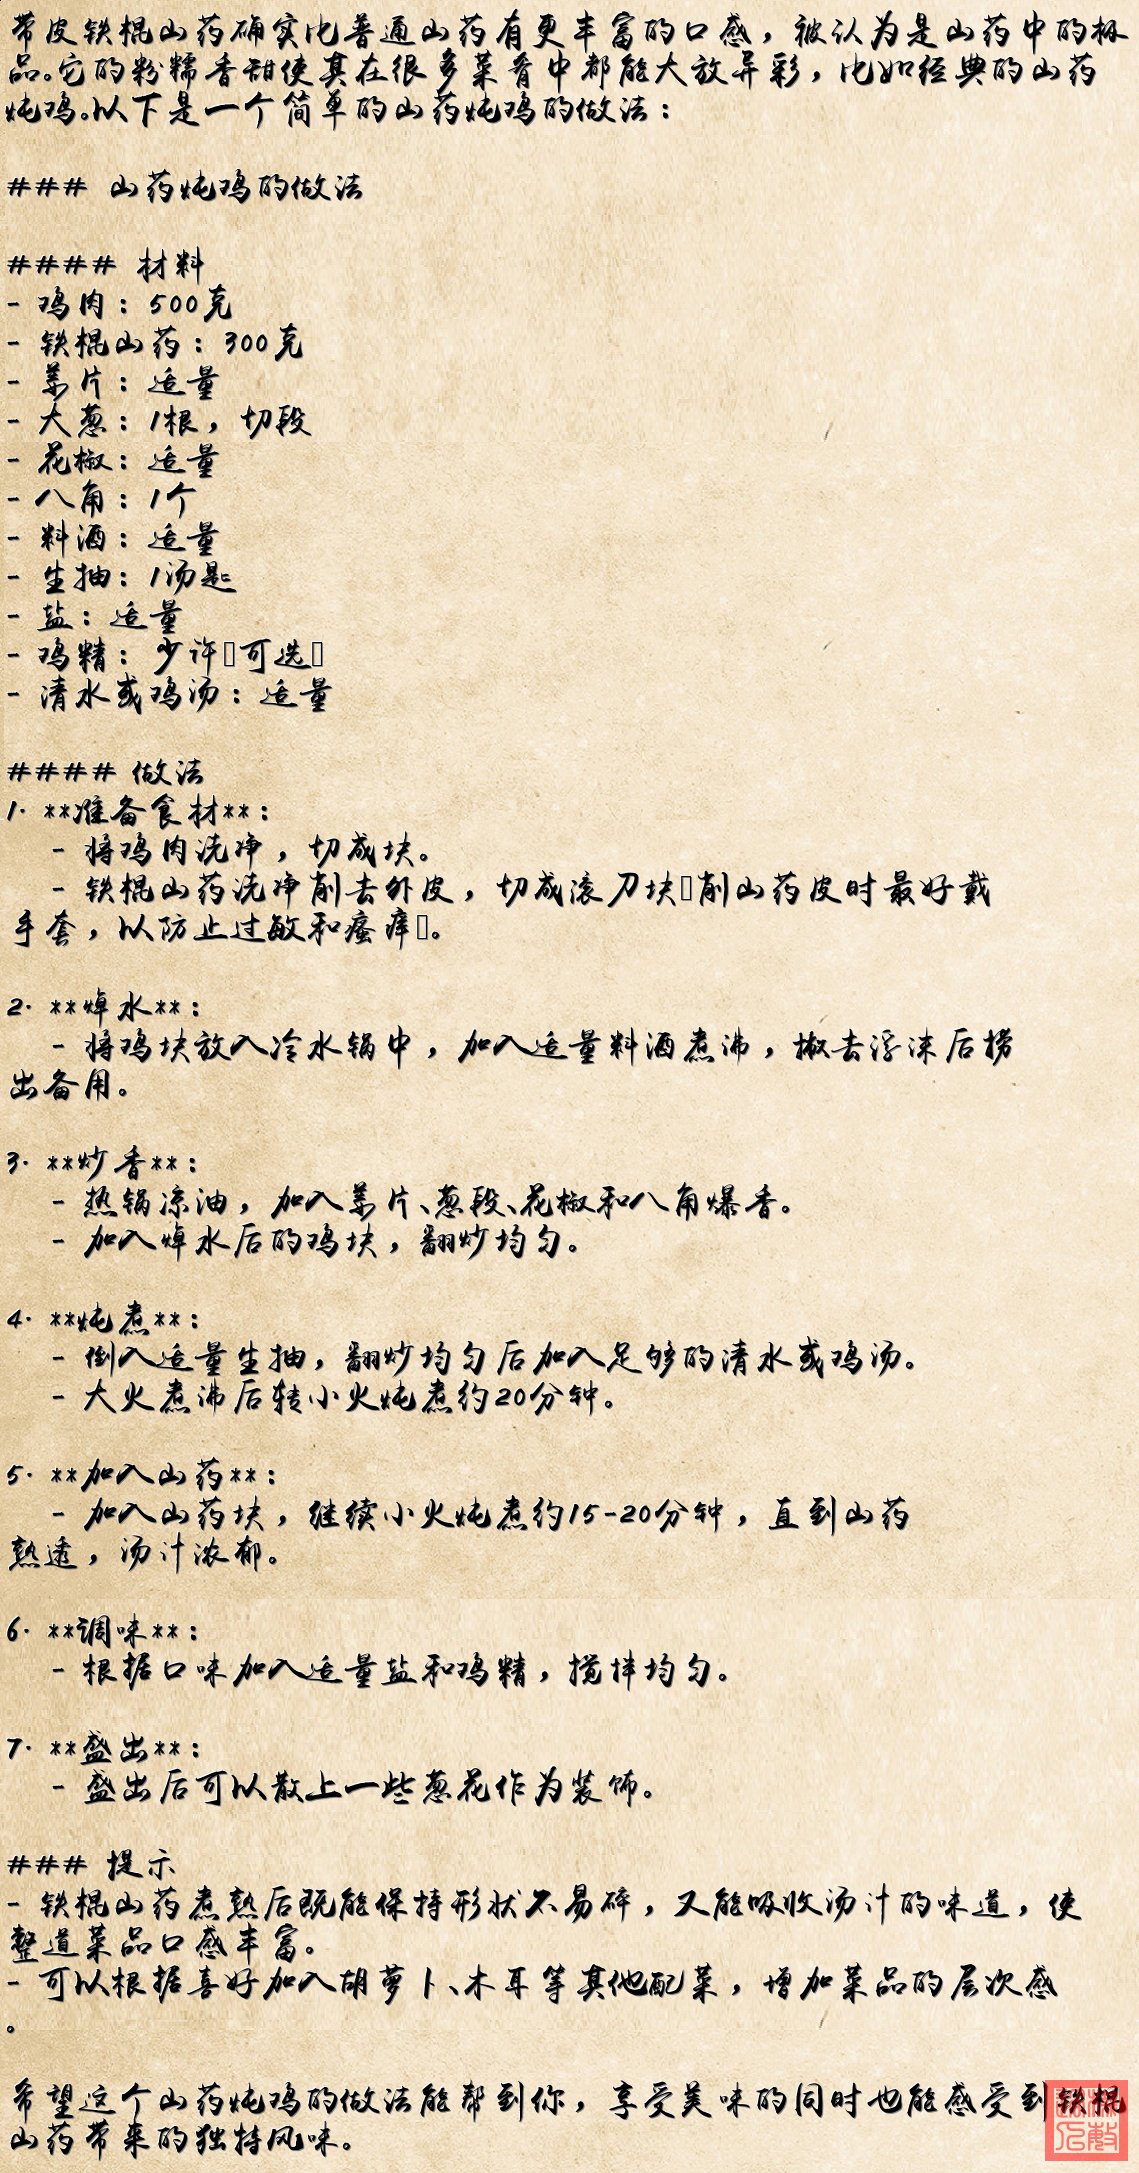 带皮铁棍山药确实比普通山药有更丰富的口感，被认为是山药中的极
品。它的粉糯香甜使其在很多菜肴中都能大放异彩，比如经典的山药
炖鸡。以下是一个简单的山药炖鸡的做法：
### 山药炖鸡的做法
#### 材料
- 鸡肉：500克
- 铁棍山药：300克
- 姜片：适量
- 大葱：1根，切段
- 花椒：适量
- 八角：1个
- 料酒：适量
- 生抽：1汤匙
- 盐：适量
- 鸡精：少许▯可选▯
- 清水或鸡汤：适量
#### 做法
1. **准备食材**：
- 将鸡肉洗净，切成块。
- 铁棍山药洗净削去外皮，切成滚刀块▯削山药皮时最好戴
手套，以防止过敏和瘙痒▯。
2. **焯水**：
- 将鸡块放入冷水锅中，加入适量料酒煮沸，撇去浮沫后捞
出备用。
3. **炒香**：
- 热锅凉油，加入姜片、葱段、花椒和八角爆香。
- 加入焯水后的鸡块，翻炒均匀。
4. **炖煮**：
- 倒入适量生抽，翻炒均匀后加入足够的清水或鸡汤。
- 大火煮沸后转小火炖煮约20分钟。
5. **加入山药**：
- 加入山药块，继续小火炖煮约15-20分钟，直到山药
熟透，汤汁浓郁。
6. **调味**：
- 根据口味加入适量盐和鸡精，搅拌均匀。
7. **盛出**：
- 盛出后可以散上一些葱花作为装饰。
### 提示
- 铁棍山药煮熟后既能保持形状不易碎，又能吸收汤汁的味道，使
整道菜品口感丰富。
- 可以根据喜好加入胡萝卜、木耳等其他配菜，增加菜品的层次感
。
希望这个山药炖鸡的做法能帮到你，享受美味的同时也能感受到铁棍
山药带来的独特风味。